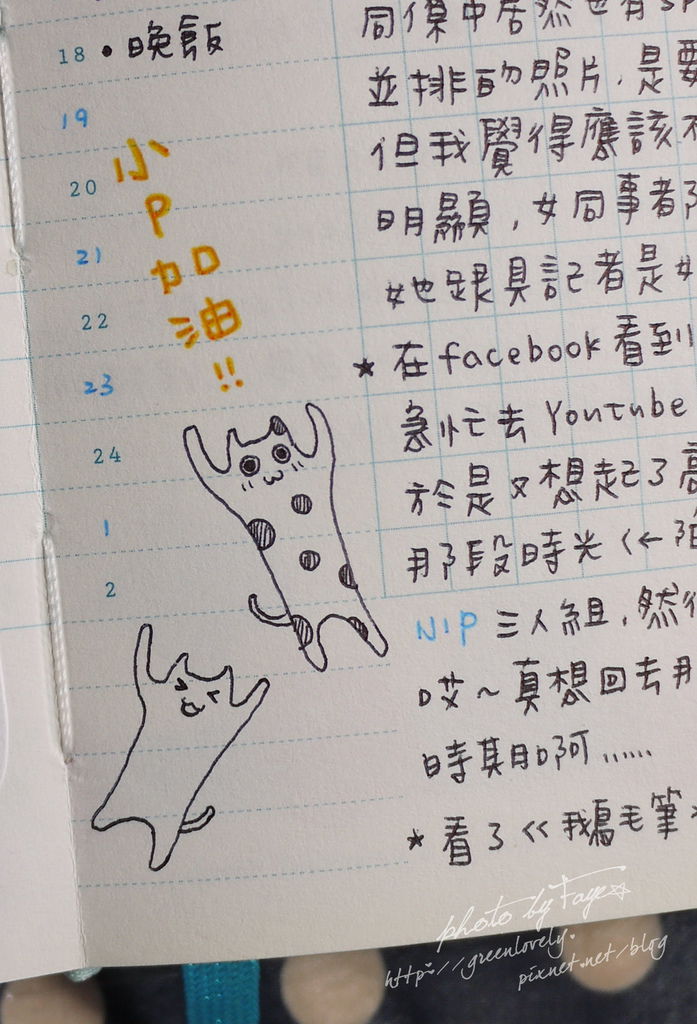 18 • 晚飯
19
20
21
22
23
24
1
2
小
P
加
油
!!
同傑中居然也有SP
並排的照片,是要
但我覺得應該不
明顯,女同事者阝
她跟具記者是女
★ 在facebook看到
急忙去 Youtube
於是又想起了高
那段時光<←
NIP 三人組,然後
哎~真想回去那
時期啊……
★ 看了<<我鵝毛筆
photo by Faye☆
http://greenlovely.
pixnet.net/blog